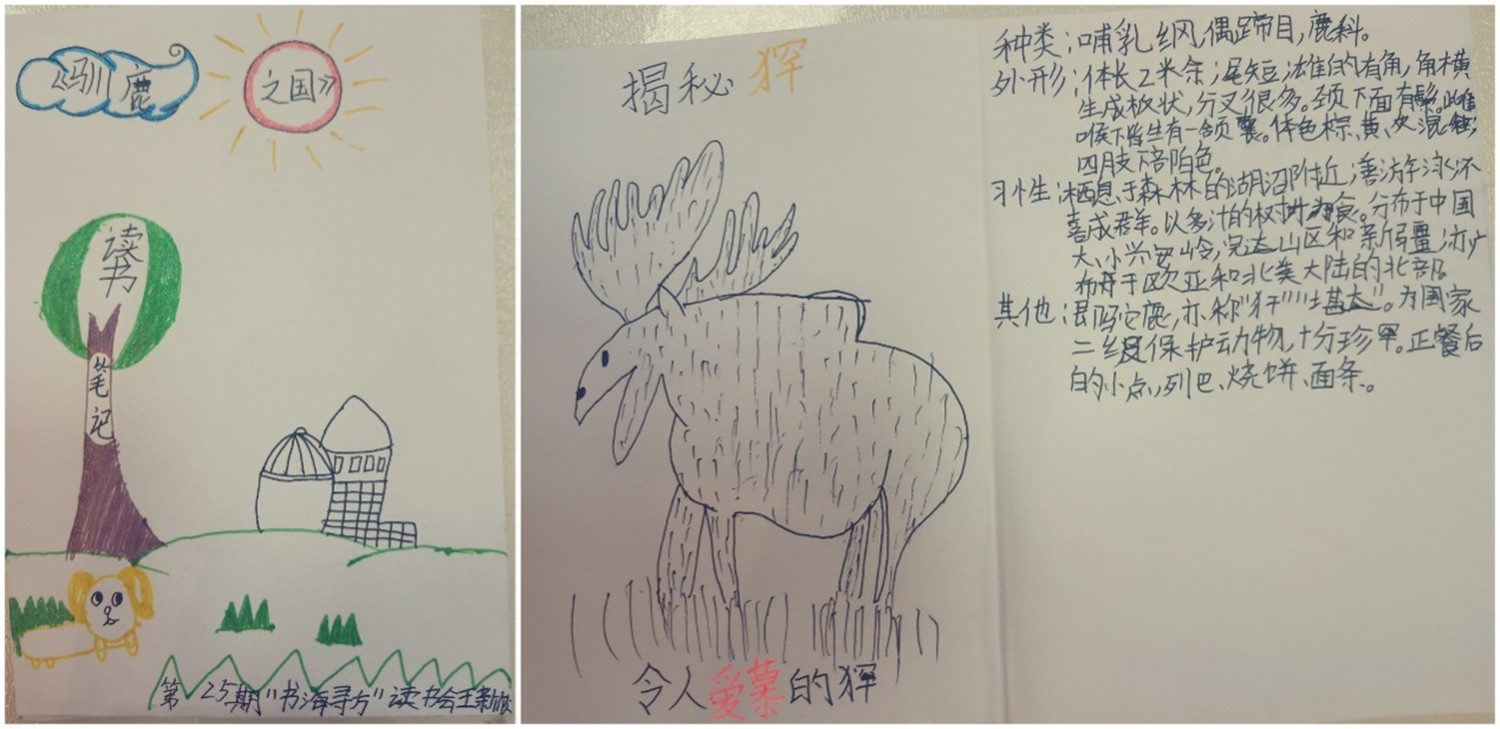 《驯鹿
之国》
读书
笔记
第25期“书海寻方”读书会王
揭秘犴
令人爱慕的犴
种类：哺乳纲，偶蹄目，鹿科。
外形：体长2米余；尾短；雄的有角，角横
生成板状，分叉很多。颈下面有鬃。
喉下皆生有一颌囊。体色棕、黄、灰混
四肢下部白色。
习性：栖息于森林的湖沼附近，善游泳，不
喜成群。以多汁的树为食。分布于中国
大、小兴安岭，完达山区和新疆，亦广
布于欧亚和北美大陆的北部
其他：即驼鹿，亦称“犴”“堪达”。为国家
二级保护动物，十分珍罕。正餐后
的小点，列巴、烧饼、面条。